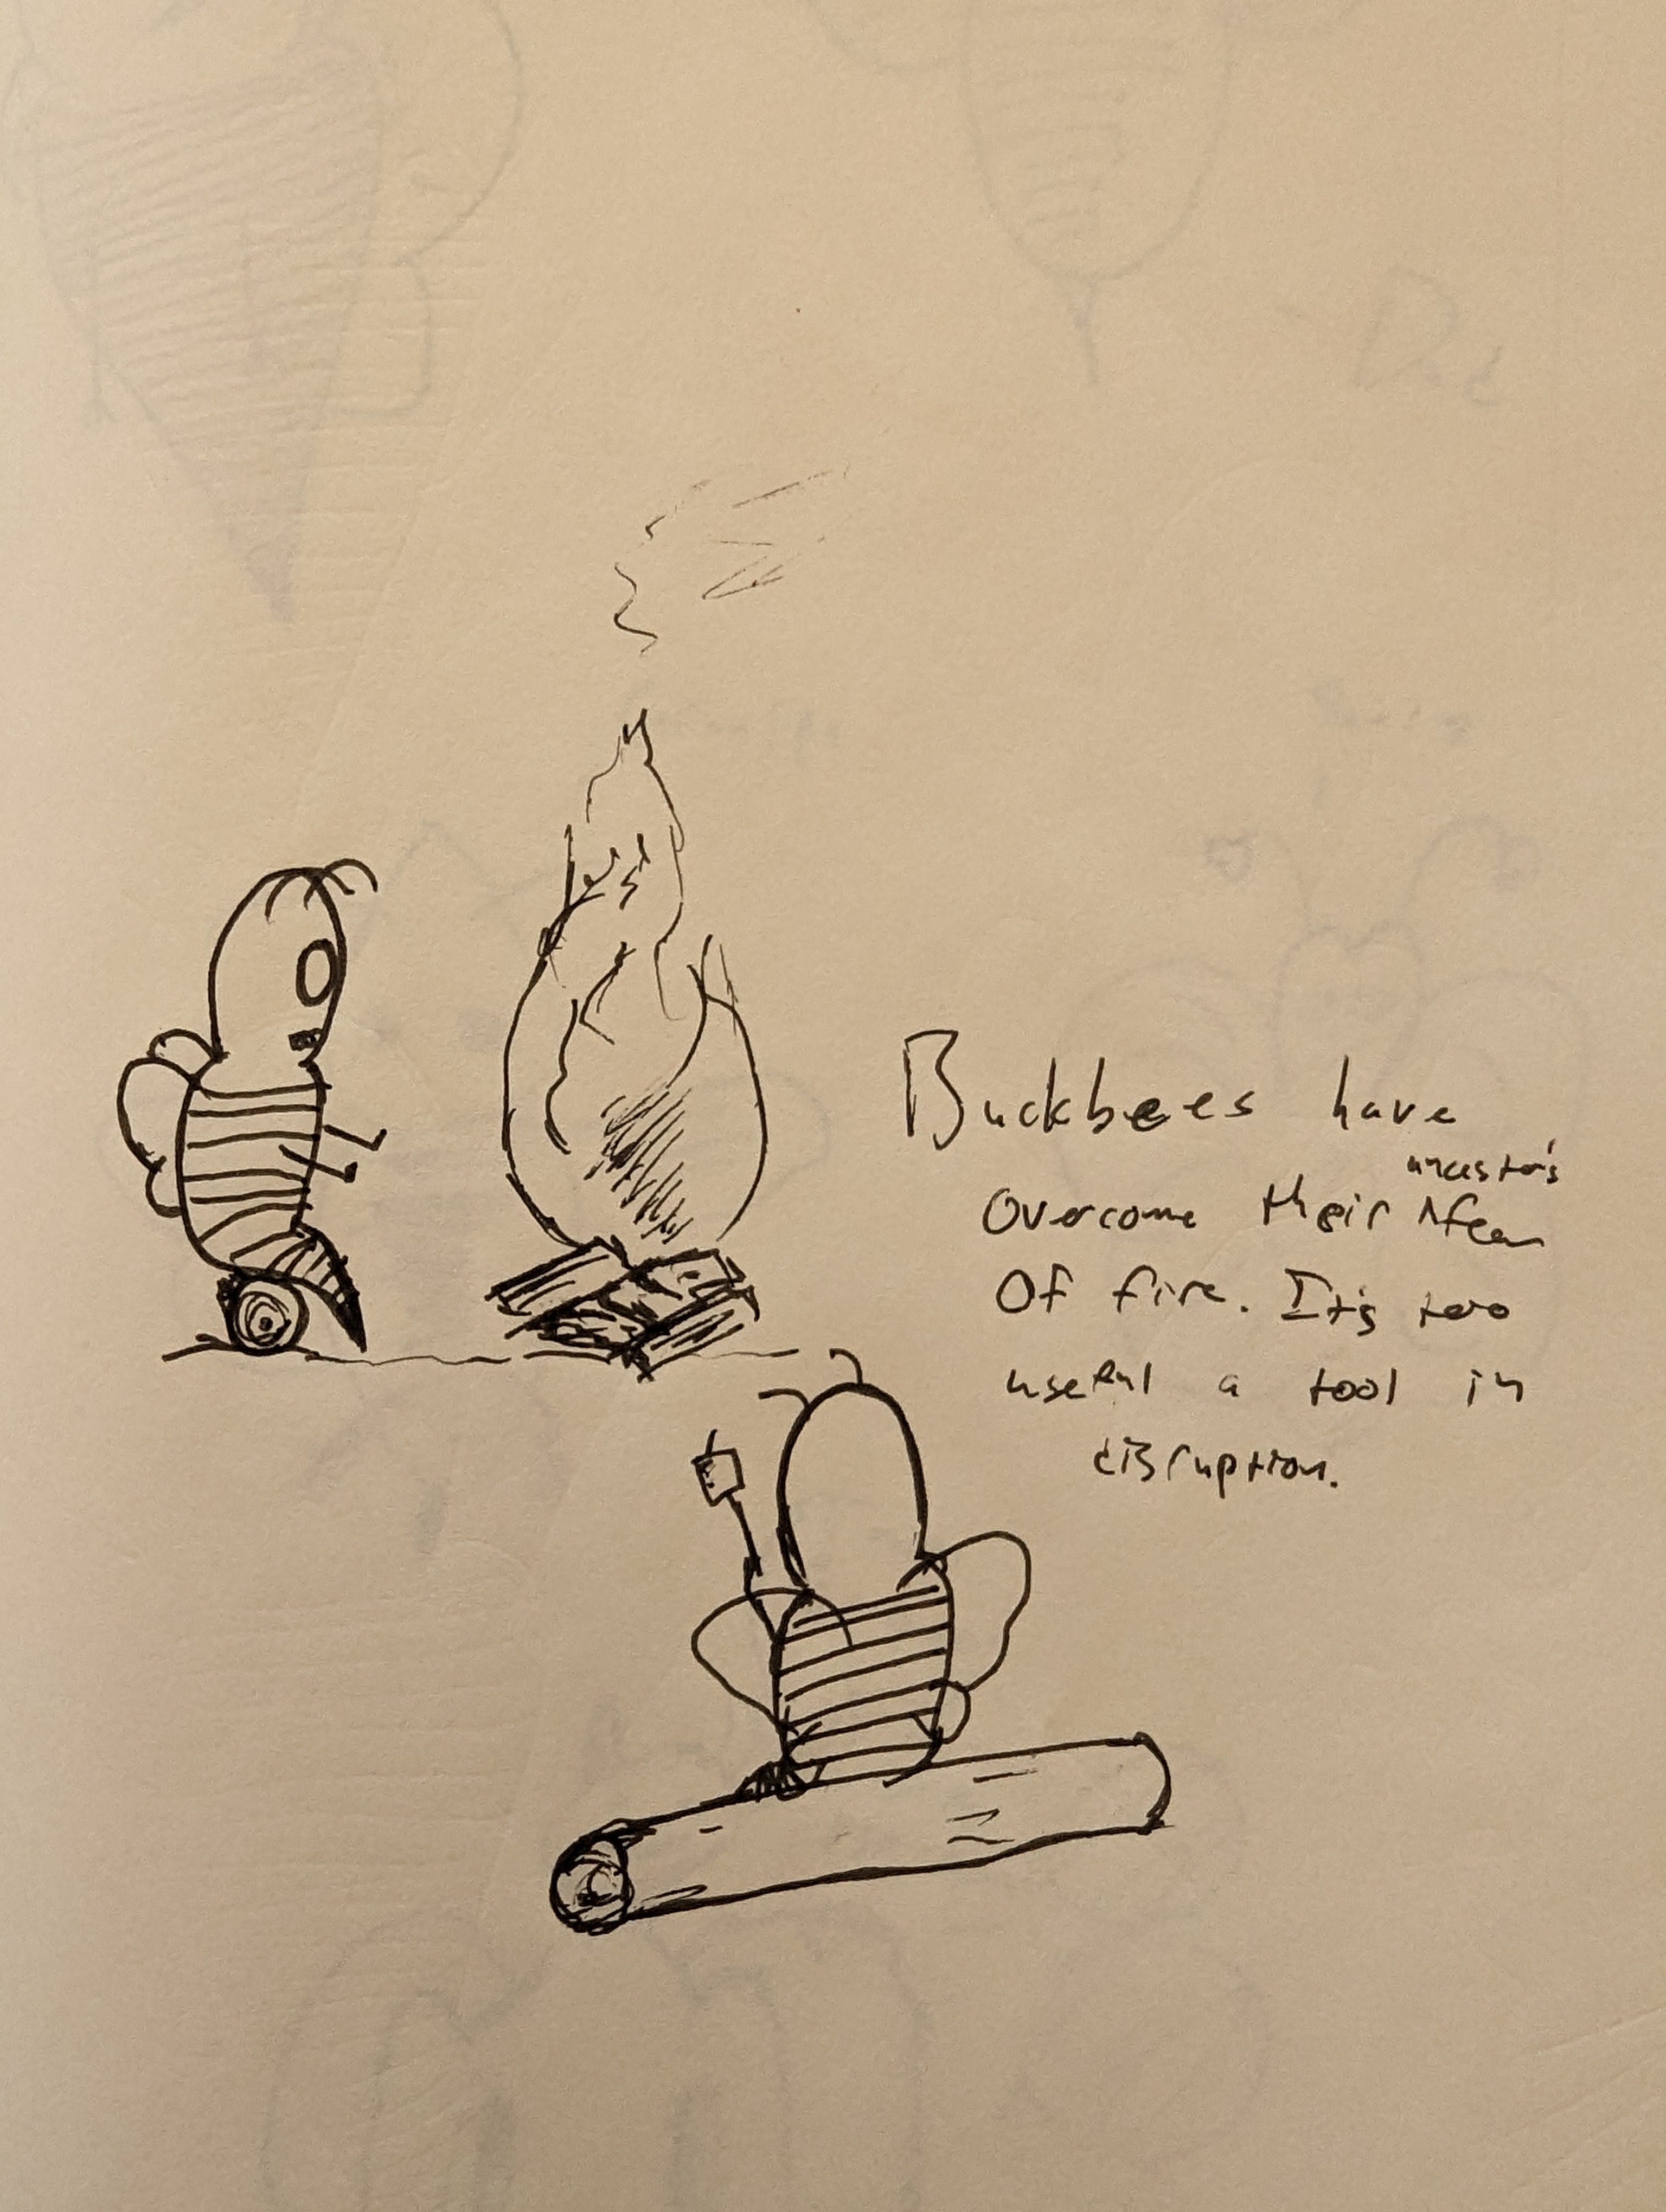 Buckbees have
ancestor's
Overcome their fear
Of fire. It's too
useful a tool in
disruption.